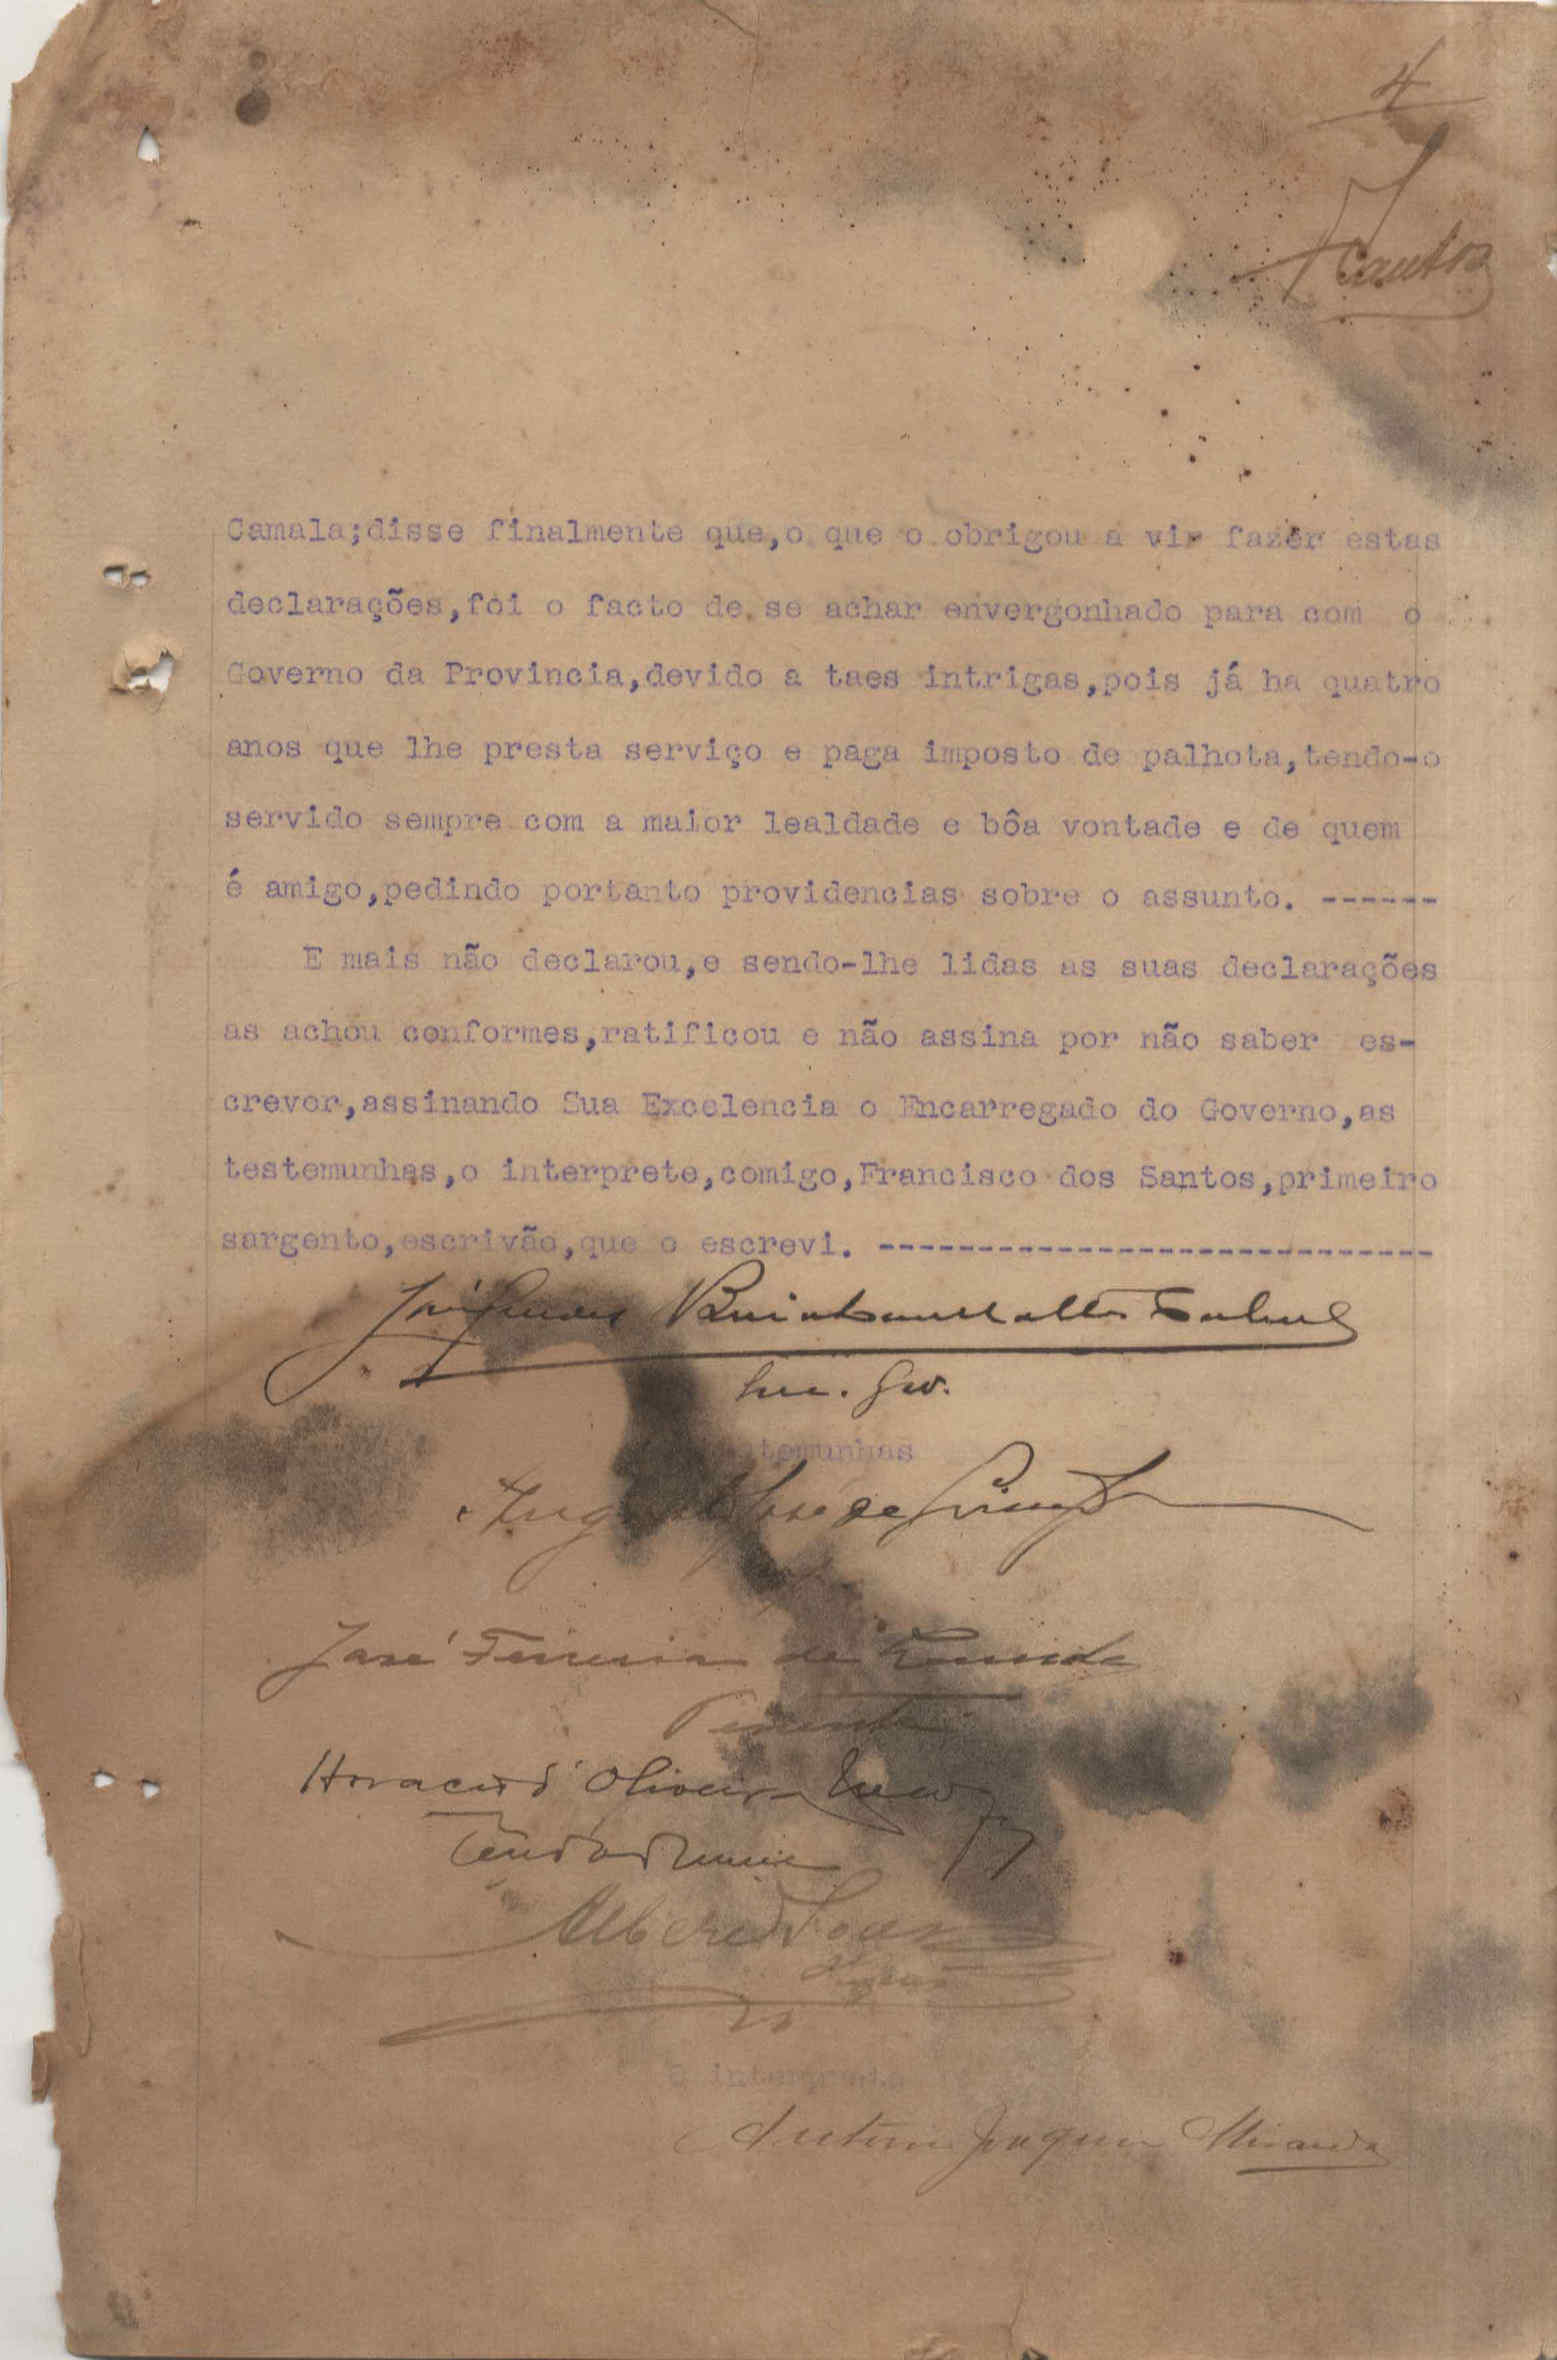 4
Santos
Camala;disse finalmente que,o que o obrigou a vir fazer estas
declarações,foi o facto de se achar envergonhado para com o
Governo da Provincia,devido a taes intrigas,pois já ha quatro
anos que lhe presta serviço e paga imposto de palhota,tendo-o
servido sempre com a maior lealdade e bôa vontade e de quem
é amigo,pedindo portanto providencias sobre o assunto. ------
E mais não declarou,e sendo-lhe lidas as suas declarações
as achou conformes,ratificou e não assina por não saber es-
crever,assinando Sua Excelencia o Encarregado do Governo,as
testemunhas,o interprete,comigo,Francisco dos Santos,primeiro
sargento,escrivão,que o escrevi. ----------------------------
Enc. Gov.
temunhas
José de
José Ferreira de
Tenente
Horacio d'Oliveira
O interprete
Antonio Joaquim Miranda